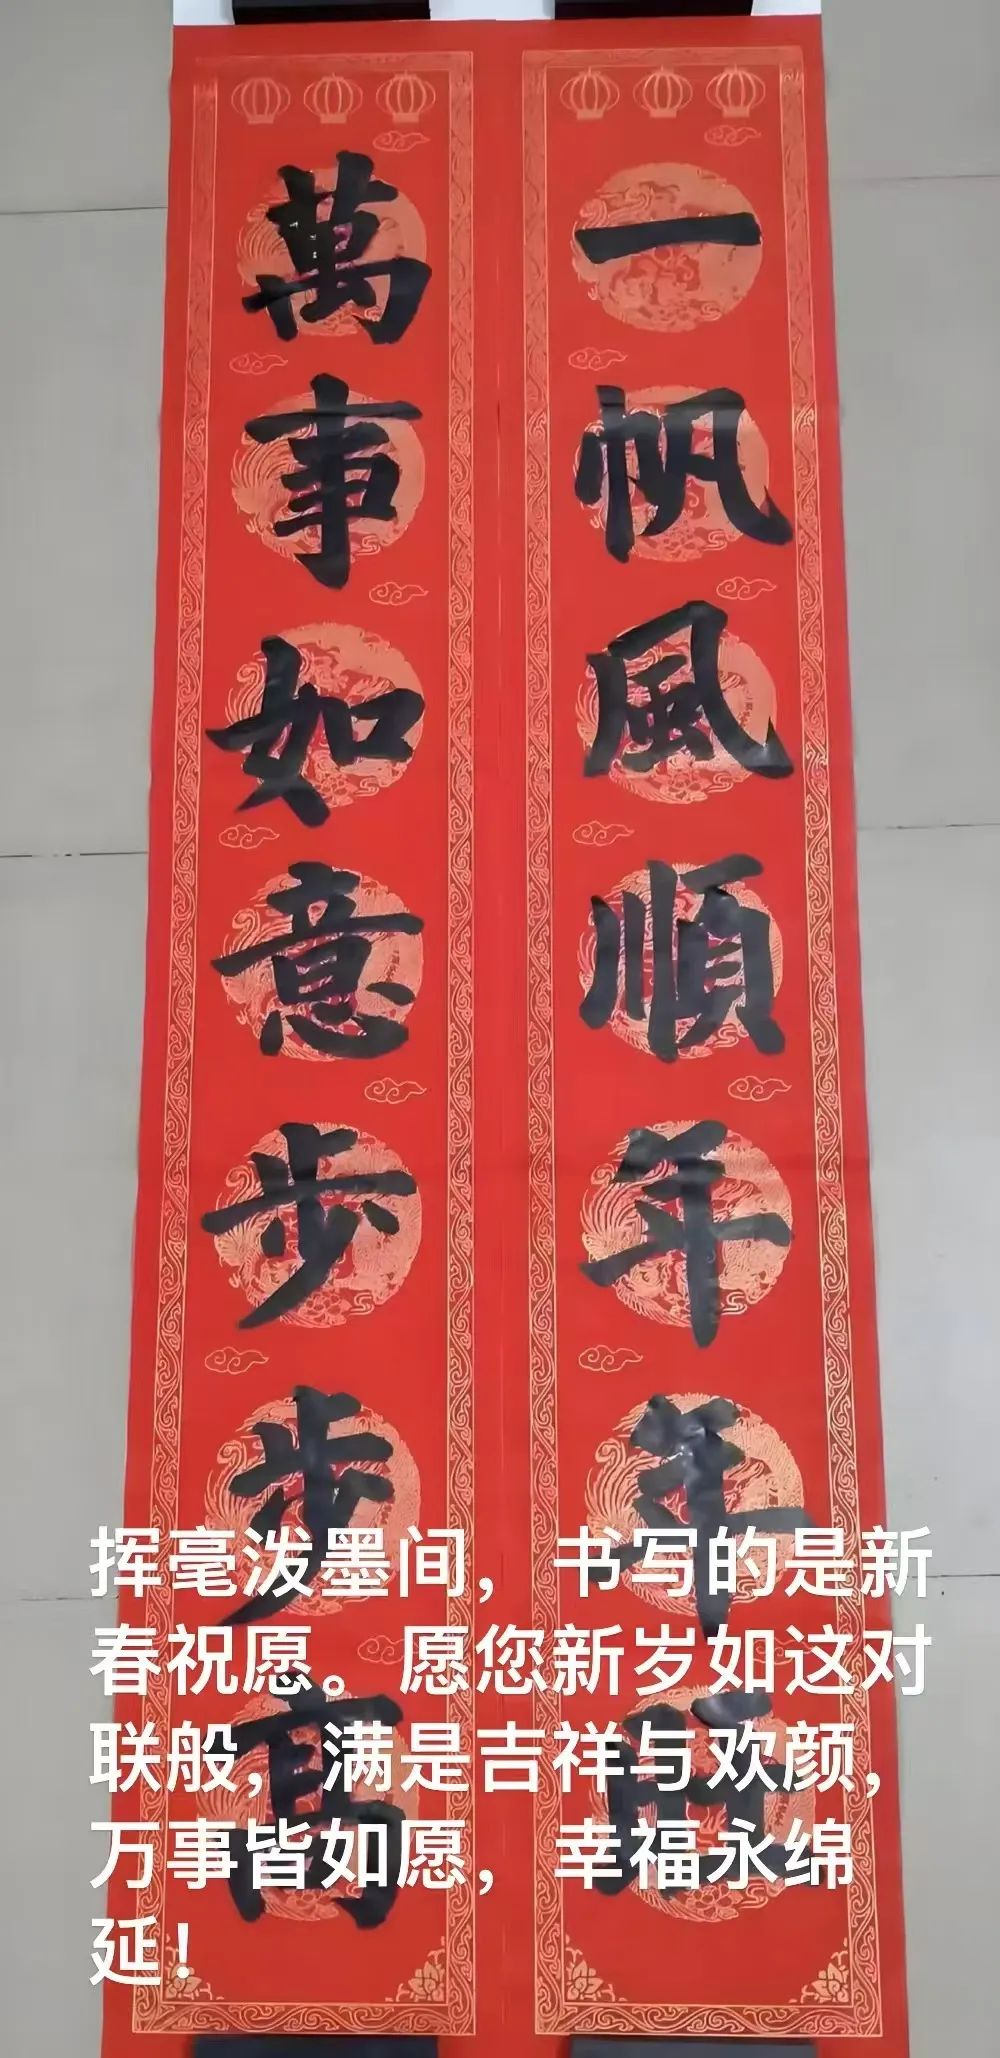 一帆風順年年
萬事如意步步高
挥毫泼墨间，书写的是新
春祝愿。愿您新岁如这对
联般，满是吉祥与欢颜，
万事皆如愿，幸福永绵
延！